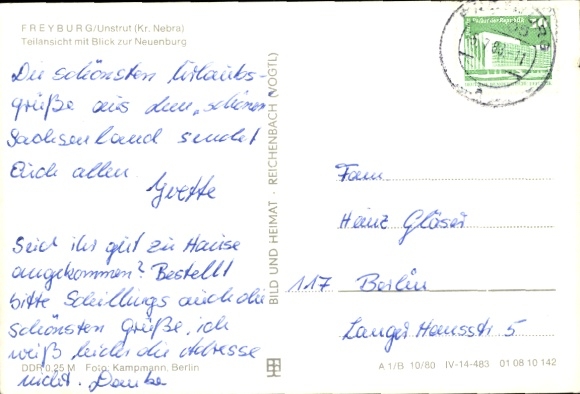 FREYBURG/Unstrut (Kr. Nebra)
Teilansicht mit Blick zur Neuenburg
Die schönsten Urlaubs-
grüße aus dem „schönen
Sachsenland sendet
Euch allen
Yvette
Seid ihr gut zu Hause
angekommen? Bestellt
bitte Schillings auch die
schönsten Grüße, ich
weiß leider die Adresse
nicht. Danke
DDR 0,25 M Foto: Kampmann, Berlin
BILD UND HEIMAT · REICHENBACH (VOGTL)
Palast der Republik
Fam.
Heinz Gläser
117 Berlin
Lange Hausstr. 5
A 1/B 10/80 IV-14-483 01 08 10 142